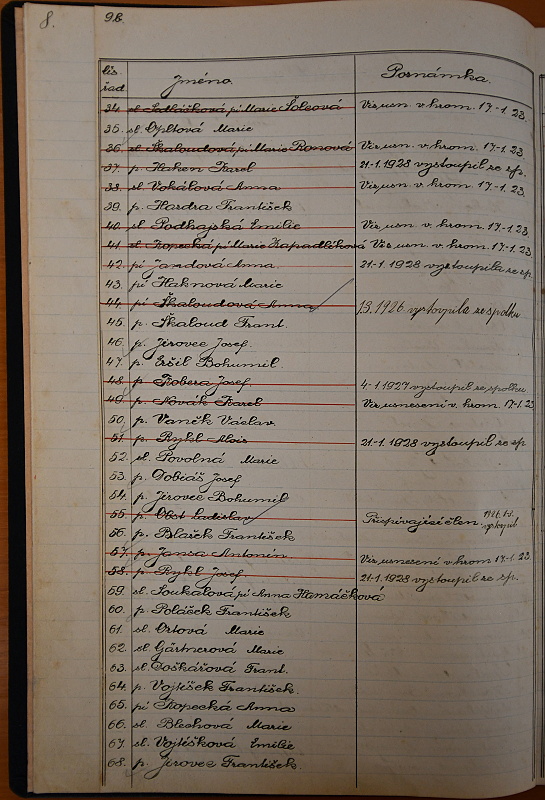 8.
9b.
čís. řad. Jméno. Poznámka.
34. sl. Sedláčková pí Marie Šolcová Viz usn. v. hrom. 17.-1. 23.
35. sl. Opltová Marie
36. sl. Škaloudová pí Marie Ronová Viz usn. v. hrom. 17-1. 23.
37. p. Haken Karel 21-1.1928 vystoupil ze sp.
38. sl. Vokálová Anna Viz usn. v. hrom. 17-1.23.
39. p. Hardra František
40. sl. Podhajská Emilie Viz usn. v. hrom. 17-1.23.
41. sl. Kopecká pí Marie Zapadlíková Viz usn. v. hrom. 17-1.23.
42. pí Jandová Anna. 21-1.1928 vystoupila ze sp.
43. pí Haknová Marie
44. pí Škaloudová Anna 1926. vystoupila ze spolku
45. p. Škaloud Frant.
46. p. Jirovec Josef.
47. p. Eršil Bohumil
48. p. Kobera Josef. 4-1.1927 vystoupil ze spolku
49. p. Novák Karel Viz usnesení v. hrom. 17-1.23.
50. p. Vaněk Václav.
51. p. Rykl Alois 21-1.1928 vystoupil ze sp
52. sl. Povolná Marie
53. p. Dobiáš Josef
54. p. Jirovec Bohumil
55. p. Obst Ladislav Přispívající člen vystoupil
56. p. Blažek František
57. p. Jansa Antonín Viz usnesení v hrom 17.-1.23.
58. p. Rykl Josef. 21-1.1928 vystoupil ze sp.
59. sl. Soukalová pí Anna Hamáčková
60. p. Poláček František
61. sl. Ortová Marie
62. sl. Gärtnerová Marie
63. sl. Doškářová Frant.
64. p. Vojtíšek František.
65. pí Kopecká Anna
66. sl. Blechová Marie
67. sl. Vojtíšková Emilie
68. p. Jirovec František.